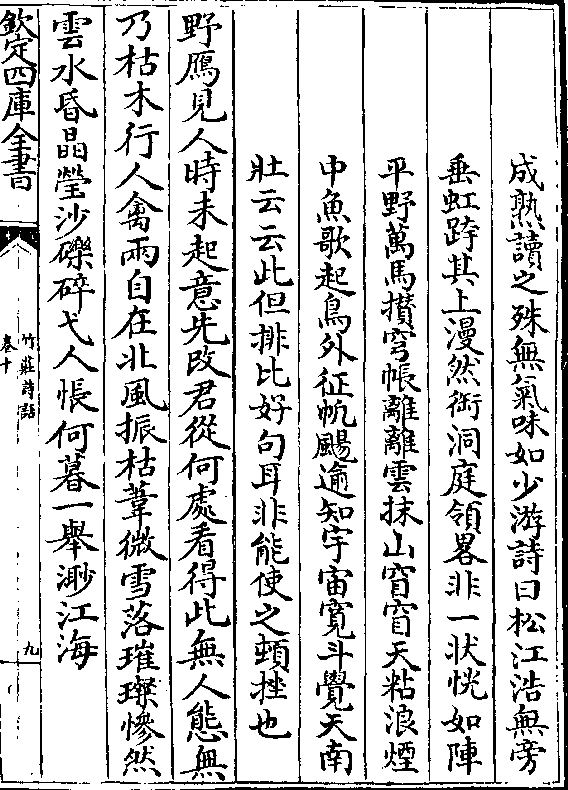 成熟讀之殊無氣味如少游詩曰松江浩無旁
垂虹跨其上漫然銜洞庭領畧非一狀恍如陣
平野萬馬攢穹帳離離雲抹山窅窅天粘浪煙
中魚歌起鳥外征帆颺逾知宇宙寛斗覺天南
壯云云此但排比好句耳非能使之頓挫也
野鴈見人時未起意先改君從何處看得此無人態無
乃枯木行人禽兩自在北風振枯葦微雪落璀璨慘然
雲水昏晶瑩沙礫碎弋人悵何暮一舉渺江海
欽定四庫全書
竹莊詩話
卷十
九